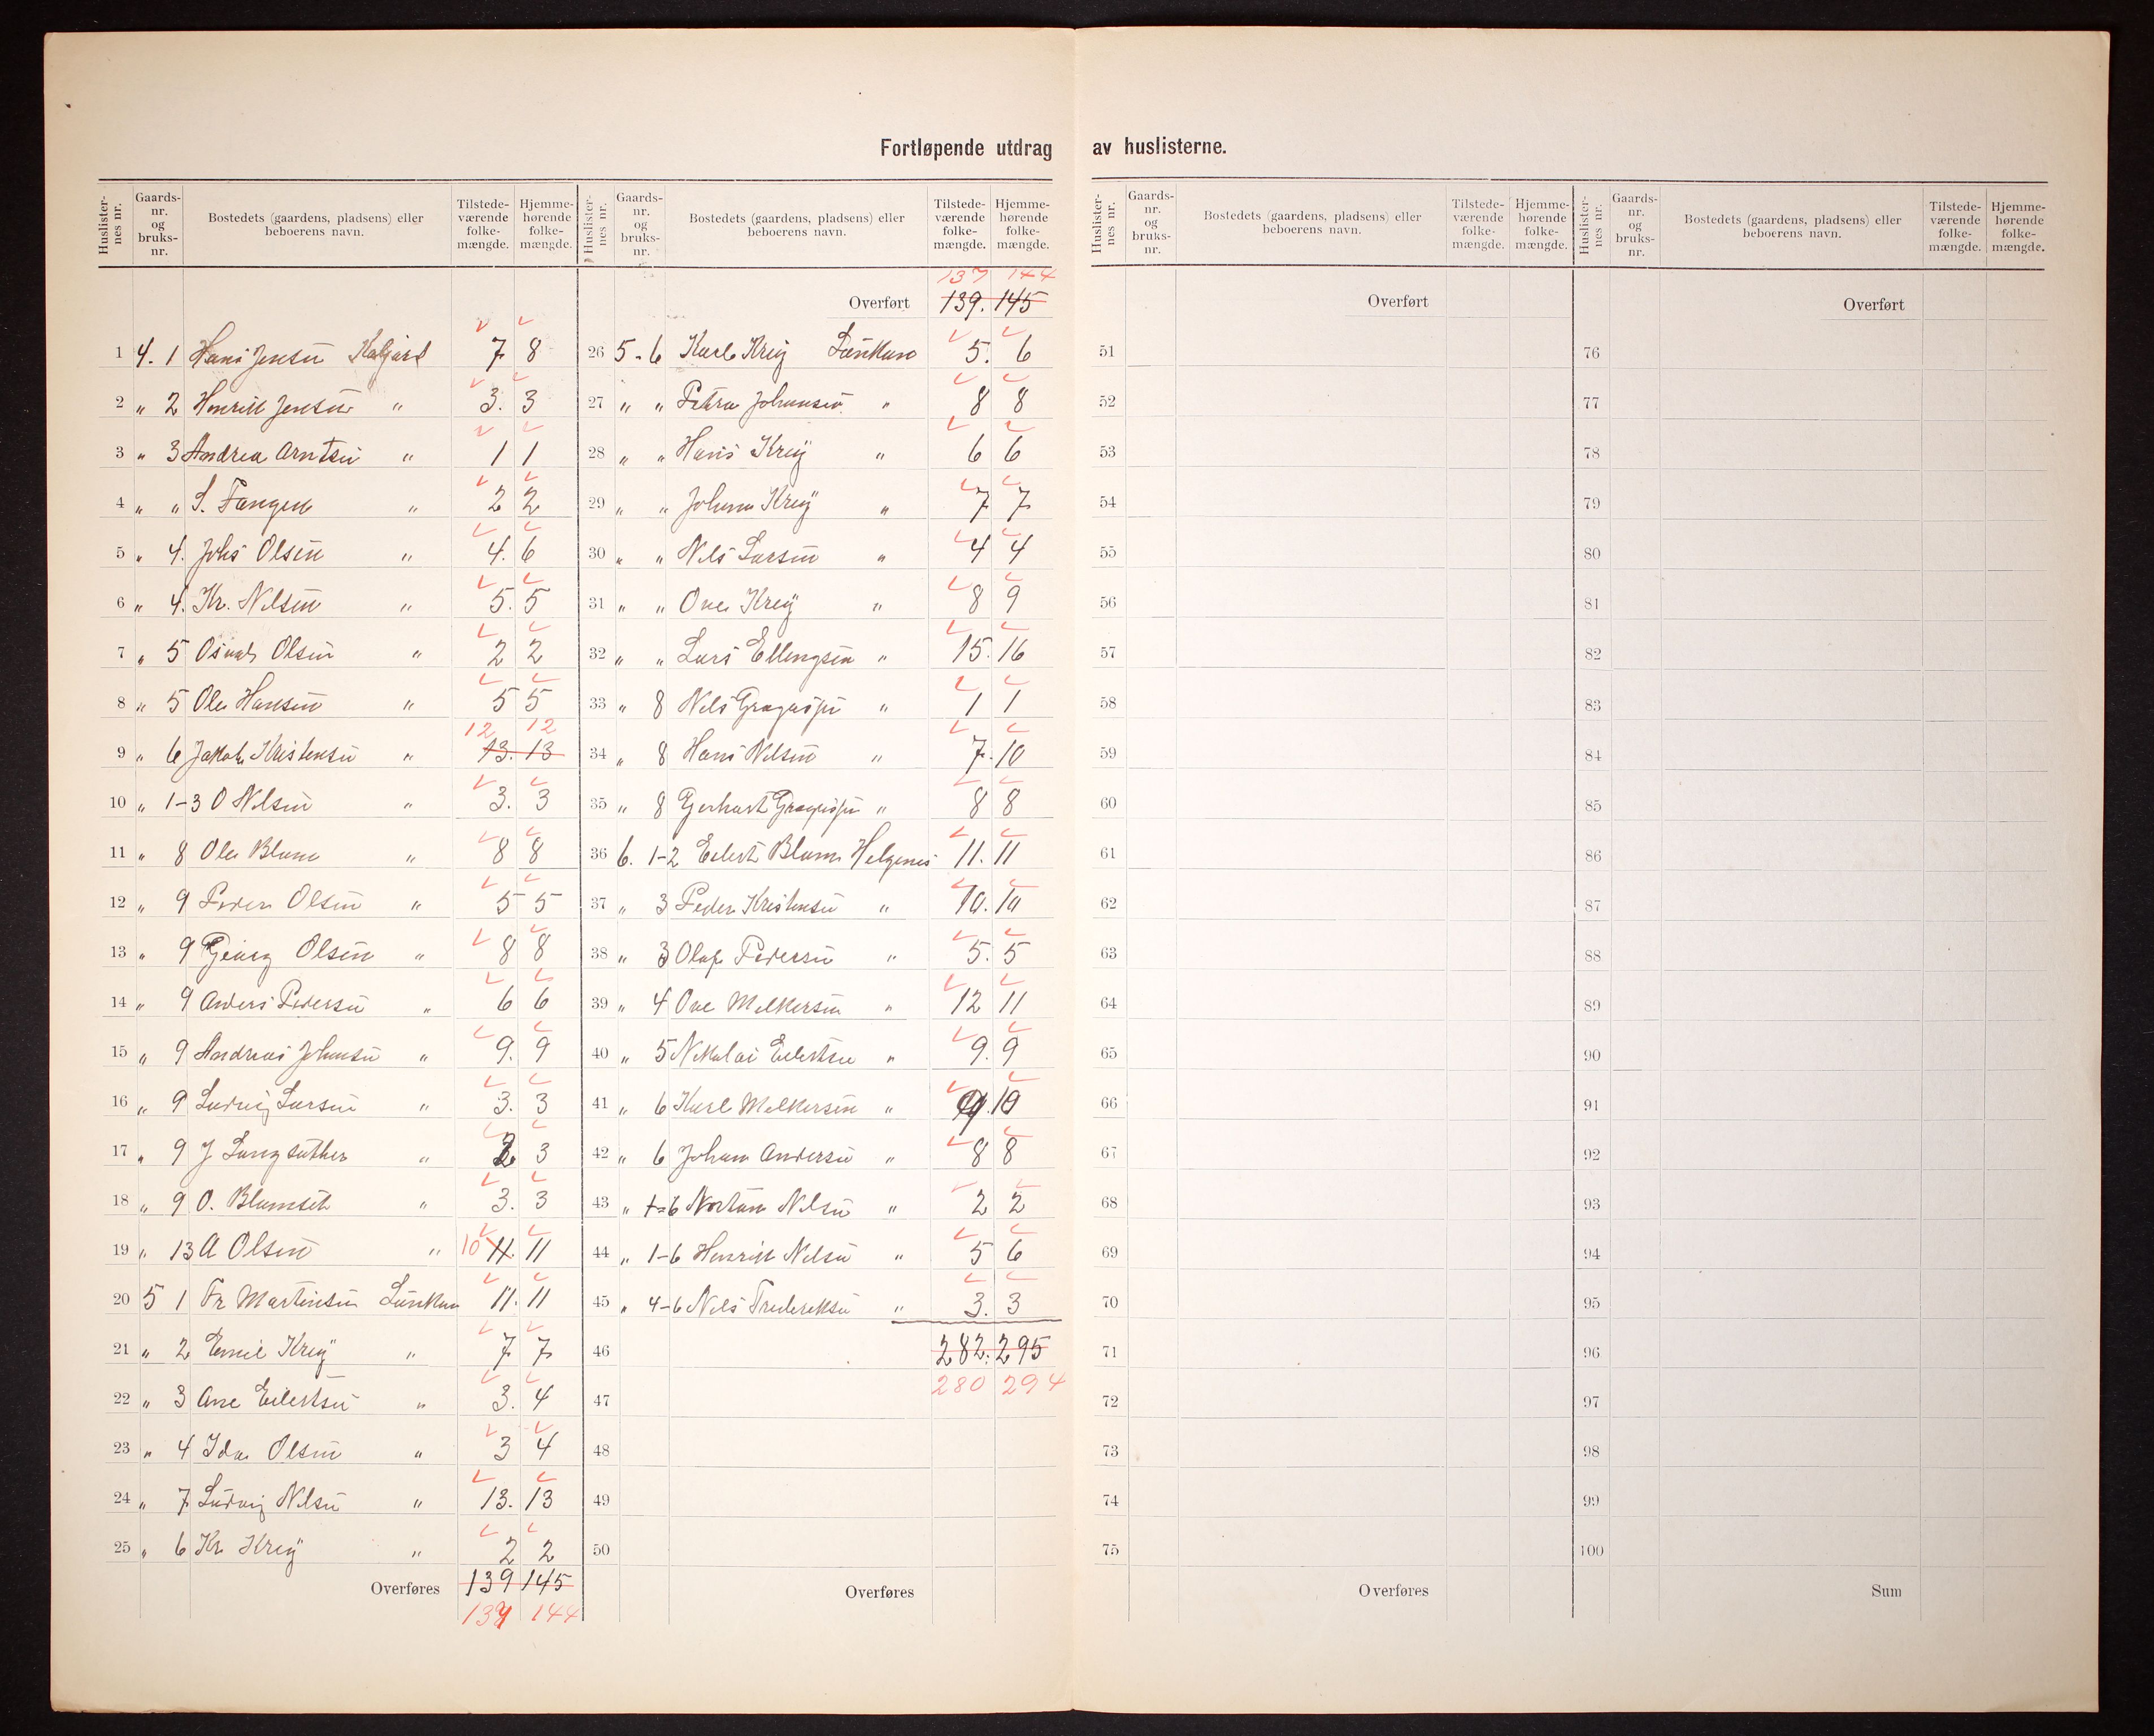 Fortløpende utdrag av huslisterne.
Huslister-nes nr. Gaards-nr. og bruks-nr. Bostedets (gaardens, pladsens) eller beboerens navn. Tilstede-værende folke-mængde. Hjemme-hørende folke-mængde.
1 4. 1 Hans Jensen 7 8
2 " 2 Henrik Jensen " 3. 3
3 " 3 Andrea Arntsen " 1 1
4 " " S. Fangen " 2 2
5 " 4. Johs Olsen " 4. 6
6 " 4. Kr. Nilsen " 5. 5
7 " 5 Olsen " 2 2
8 " 5 Ole Hansen " 5 5
12 12
9 " 6 Jakob Kristensen " 13. 13
10 " 1-3 O Nilsen " 3. 3
11 " 8 Ole Blum " 8 8
12 " 9 Peder Olsen " 5 5
13 " 9 Georg Olsen " 8 8
14 " 9 Anders Pedersen " 6 6
15 " 9 Andreas Johansen " 9. 9
16 " 9 Ludvig Larsen " 3. 3
17 " 9 J Langsæther " 3
18 " 9 O. " 3. 3
19 " 13 A Olsen " 10 11. 11
20 5 1 Fr Martinsen Lünkan 11. 11
21 " 2 Emil Kreÿ " 7 7
22 " 3 Ane Eilertsen " 3. 4
23 " 4 Ida Olsen " 3 4
24 " 7 Ludvig Nilsen " 13. 13
25 " 6 Kr Kreÿ " 2 2
Overføres 139 145
137 144
Huslister-nes nr. Gaards-nr. og bruks-nr. Bostedets (gaardens, pladsens) eller beboerens navn. Tilstede-værende folke-mængde. Hjemme-hørende folke-mængde.
137 144
Overført 139. 145
26 5-6 Karl Kreÿ Lünkan 5. 6
27 " " Petra Johansen " 8 8
28 " " Hans Kreÿ " 6 6
29 " " Johan Kreÿ " 7 7
30 " " Nils Larsen " 4 4
31 " " Ove Kreÿ " 8 9
32 " " Lars Ellingsen " 15. 16
33 " 8 Nils " 1 1
34 " 8 Hans Nilsen " 7. 10
35 " 8 Gerhart " 8 8
36 6. 1-2 Eilert Blum Helgenes 11. 11
37 " 3 Peder Kristensen " 10. 10
38 " 3 Olaf Pedersen " 5. 5
39 " 4 Ove Melkersen " 12 11
40 " 5 Nikolai Eilertsen " 9. 9
41 " 6 Karl Melkersen " 10
42 " 6 Johan Andersen " 8 8
43 " 1-6 Nortan Nilsen " 2 2
44 " 1-6 Henrik Nilsen " 5 6
45 " 4-6 Nils Frederiksen " 3. 3
46 282. 295
280 294
47
48
49
50
Overføres
Huslister-nes nr. Gaards-nr. og bruks-nr. Bostedets (gaardens, pladsens) eller beboerens navn. Tilstede-værende folke-mængde. Hjemme-hørende folke-mængde.
Overført
51
52
53
54
55
56
57
58
59
60
61
62
63
64
65
66
67
68
69
70
71
72
73
74
75
Overføres
Huslister-nes nr. Gaards-nr. og bruks-nr. Bostedets (gaardens, pladsens) eller beboerens navn. Tilstede-værende folke-mængde. Hjemme-hørende folke-mængde.
Overført
76
77
78
79
80
81
82
83
84
85
86
87
88
89
90
91
92
93
94
95
96
97
98
99
100
Sum